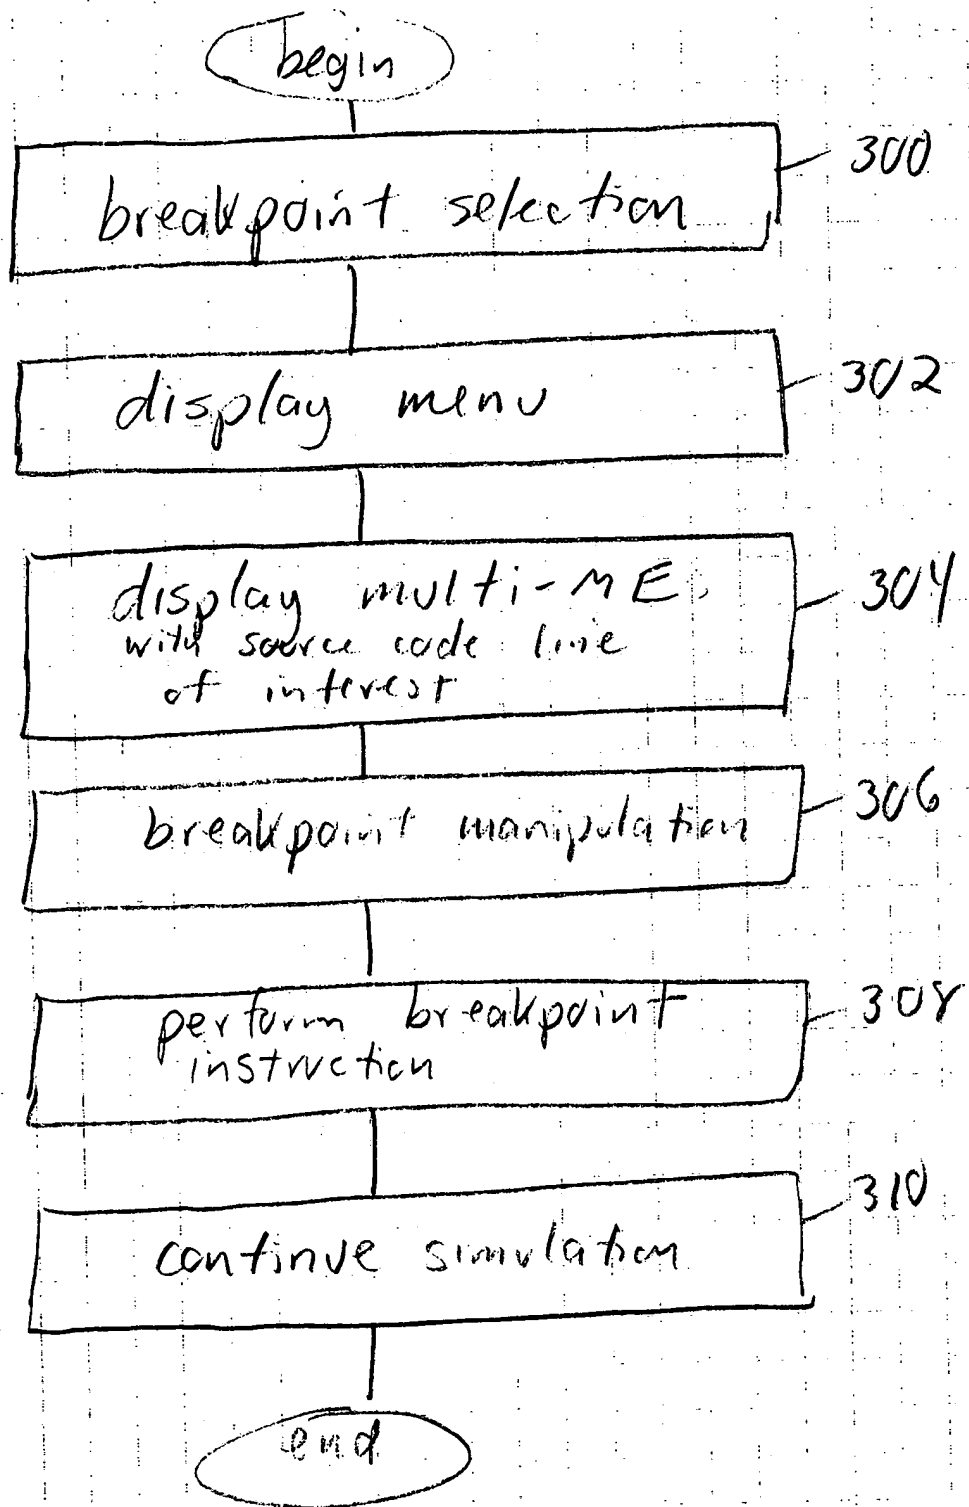 begin
breakpoint selection
300
display menu
302
display multi-ME
with source code line
of interest
304
breakpoint manipulation
306
perform breakpoint
instruction
308
continue simulation
310
end